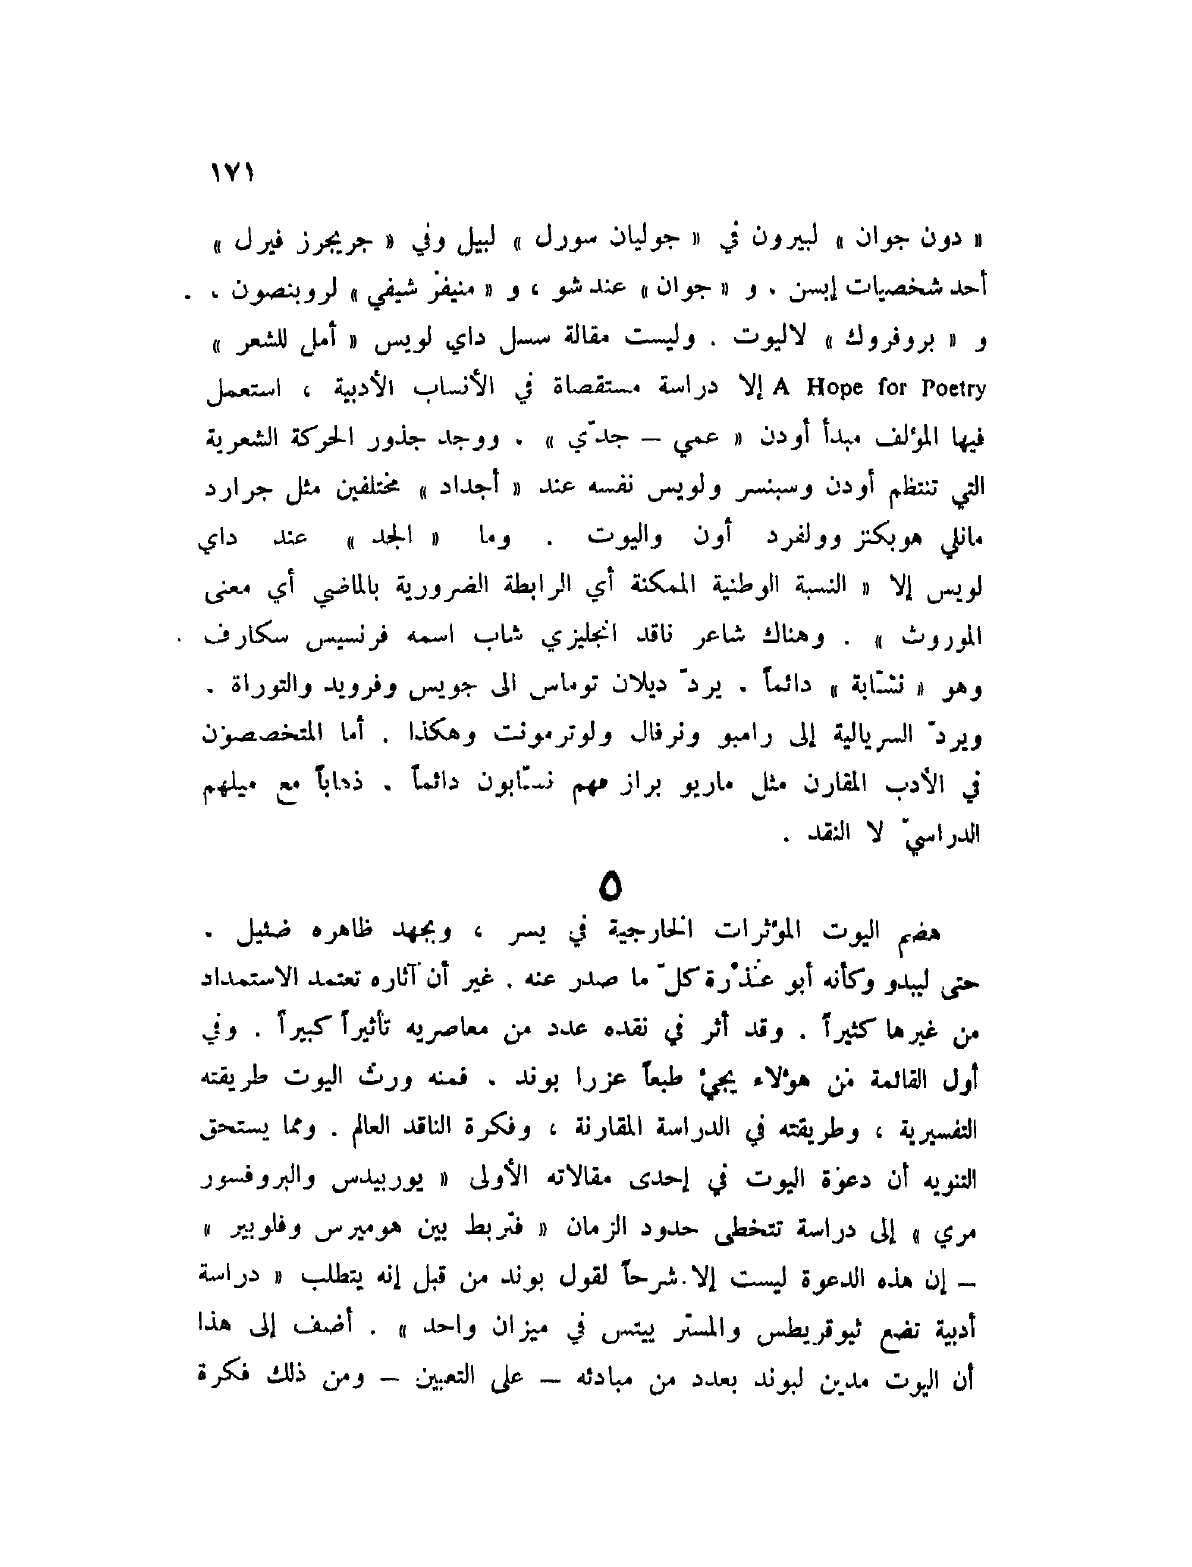 ١٧١
« دون جوان » لبيرون في « جوليان سورل » لبيل وفي « جريجرز فيرل »
أحد شخصيات إبسن . و « جوان » عند شو ، و « منيفر شيفي » لروبنصون ، .
و « بروفروك » لاليوت . وليست مقالة سسل داي لويس « أمل للشعر »
A Hope for Poetry إلا دراسة مستقصاة في الأنساب الأدبية ، استعمل
فيها المؤلف مبدأ أودن « عمي – جدّي » . ووجد جذور الحركة الشعرية
التي تنتظم أودن وسبنسر ولويس نفسه عند « أجداد » مختلفين مثل جرارد
مانلي هوبكنز وولفرد أون واليوت . وما « الجد » عند داي
لويس إلا « النسبة الوطنية الممكنة أي الرابطة الضرورية بالماضي أي معنى
الموروث » . وهناك شاعر ناقد انجليزي شاب اسمه فرنسيس سكارف .
وهو « نسّابة » دائماً . يردّ ديلان توماس الى جويس وفرويد والتوراة .
ويردّ السريالية إلى رامبو ونرفال ولوترمونت وهكذا . أما المتخصصون
في الأدب المقارن مثل ماريو براز فهم نسّابون دائماً . ذهاباً مع ميلهم
الدراسيّ لا النقد .
٥
هضم اليوت المؤثرات الخارجية في يسر ، وبجهد ظاهره ضئيل .
حتى ليبدو وكأنه أبو عُذْرة كلّ ما صدر عنه . غير أن آثاره تعتمد الاستمداد
من غيرها كثيراً . وقد أثر في نقده عدد من معاصريه تأثيراً كبيراً . وفي
أول القائمة من هؤلاء يجيُ طبعاً عزرا بوند . فمنه ورث اليوت طريقته
التفسيرية ، وطريقته في الدراسة المقارنة ، وفكرة الناقد العالم . ومما يستحق
التنويه أن دعوة اليوت في إحدى مقالاته الأولى « يوربيدس والبروفسور
مري » إلى دراسة تتخطى حدود الزمان « فتربط بين هوميرس وفلوبير »
– إن هذه الدعوة ليست إلا شرحاً لقول بوند من قبل إنه يتطلب « دراسة
أدبية تضع ثيوقريطس والمستر ييتس في ميزان واحد » . أضف إلى هذا
أن اليوت مدين لبوند بعدد من مبادئه – على التعيين – ومن ذلك فكرة